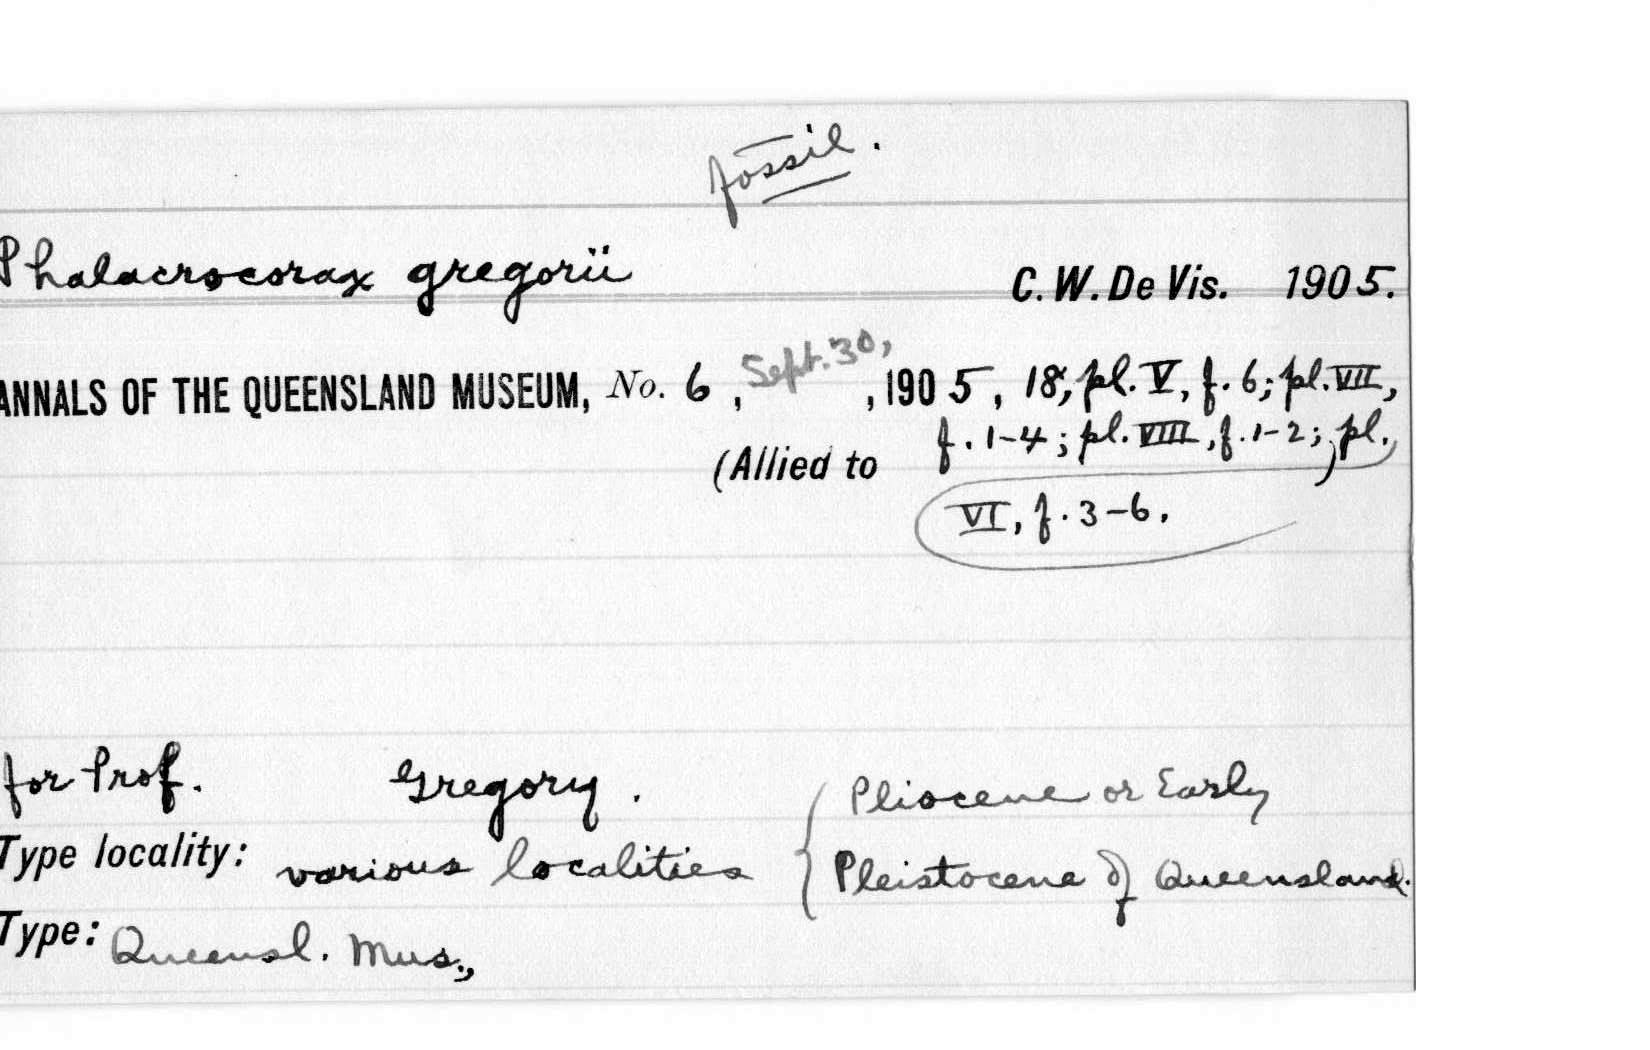 fossil.
Phalacrocorax gregorii C. W. De Vis. 1905.
ANNALS OF THE QUEENSLAND MUSEUM, No. 6, Sept. 30, , 1905, 18; pl. V, f. 6; pl. VII,
f. 1-4; pl. VIII, f. 1-2; pl.
(Allied to
VI, f. 3-6.
for Prof. Gregory.
Pliocene or Early
Type locality: various localities
Pleistocene of Queensland.
Type: Queensl. Mus.,